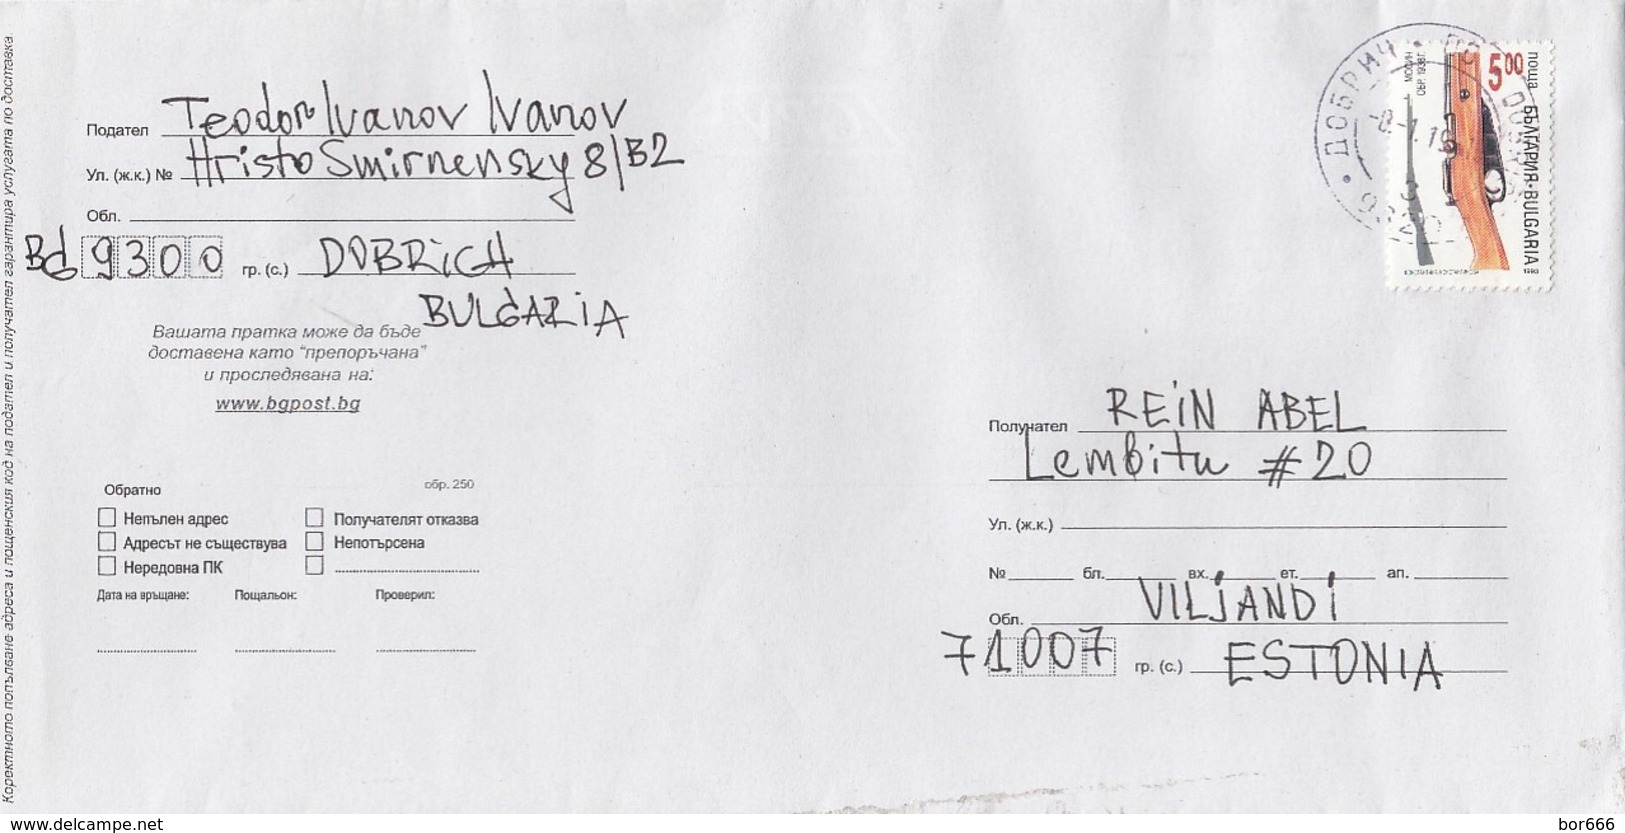 Коректното попълване адреса и пощенския код на подател и получател гарантира услугата по доставка
Подател Teodor Ivanov Ivanov
Ул. (ж.к.) № Hristo Smirnensky 8/B2
Обл.
BG 9300 гр. (с.) DOBRICH
BULGARIA
Вашата пратка може да бъде
доставена като "препоръчана"
и проследявана на:
www.bgpost.bg
Обратно обр. 250
Непълен адрес Получателят отказва
Адресът не съществува Непотърсена
Нередовна ПК
Дата на връщане: Пощальон: Проверил:
ДОБРИЧ
500
поща БЪЛГАРИЯ·BULGARIA
МОСИН
ОБР. 1938 Г.
1993
Получател REIN ABEL
Lembitu #20
Ул. (ж.к.)
№ бл. вх. ет. ап.
Обл. VILJANDI
71007 гр. (с.) ESTONIA
www.delcampe.net
bor666